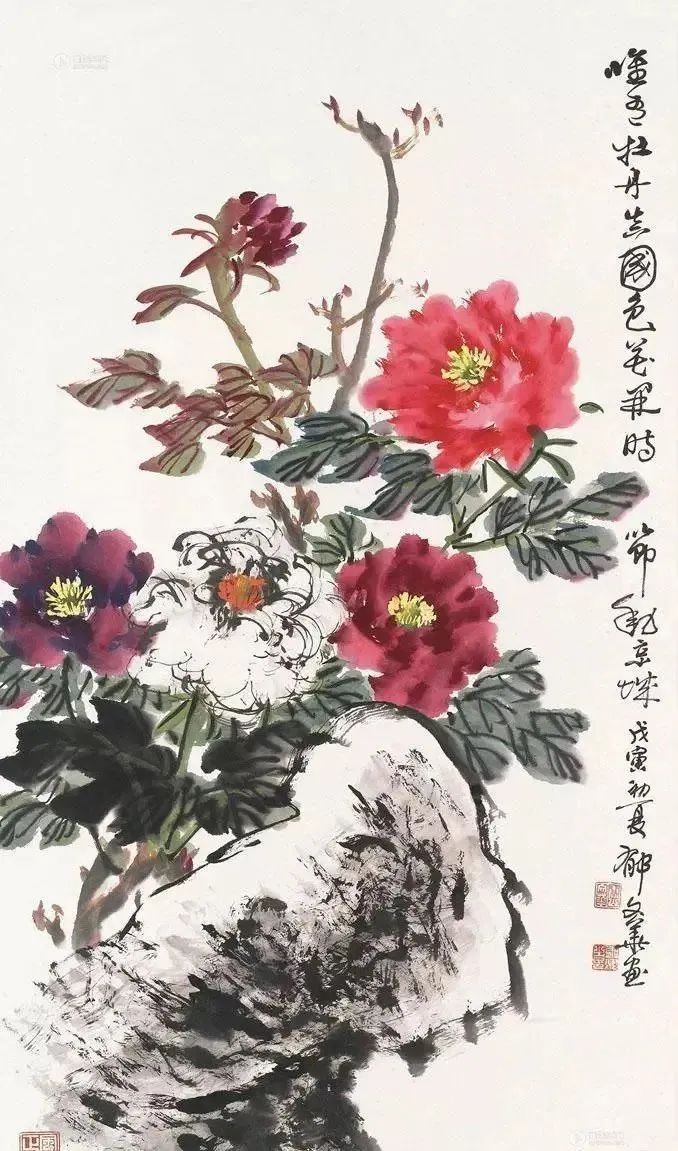 唯有牡丹真國色花開時節動京城戊寅初夏郁文華畫